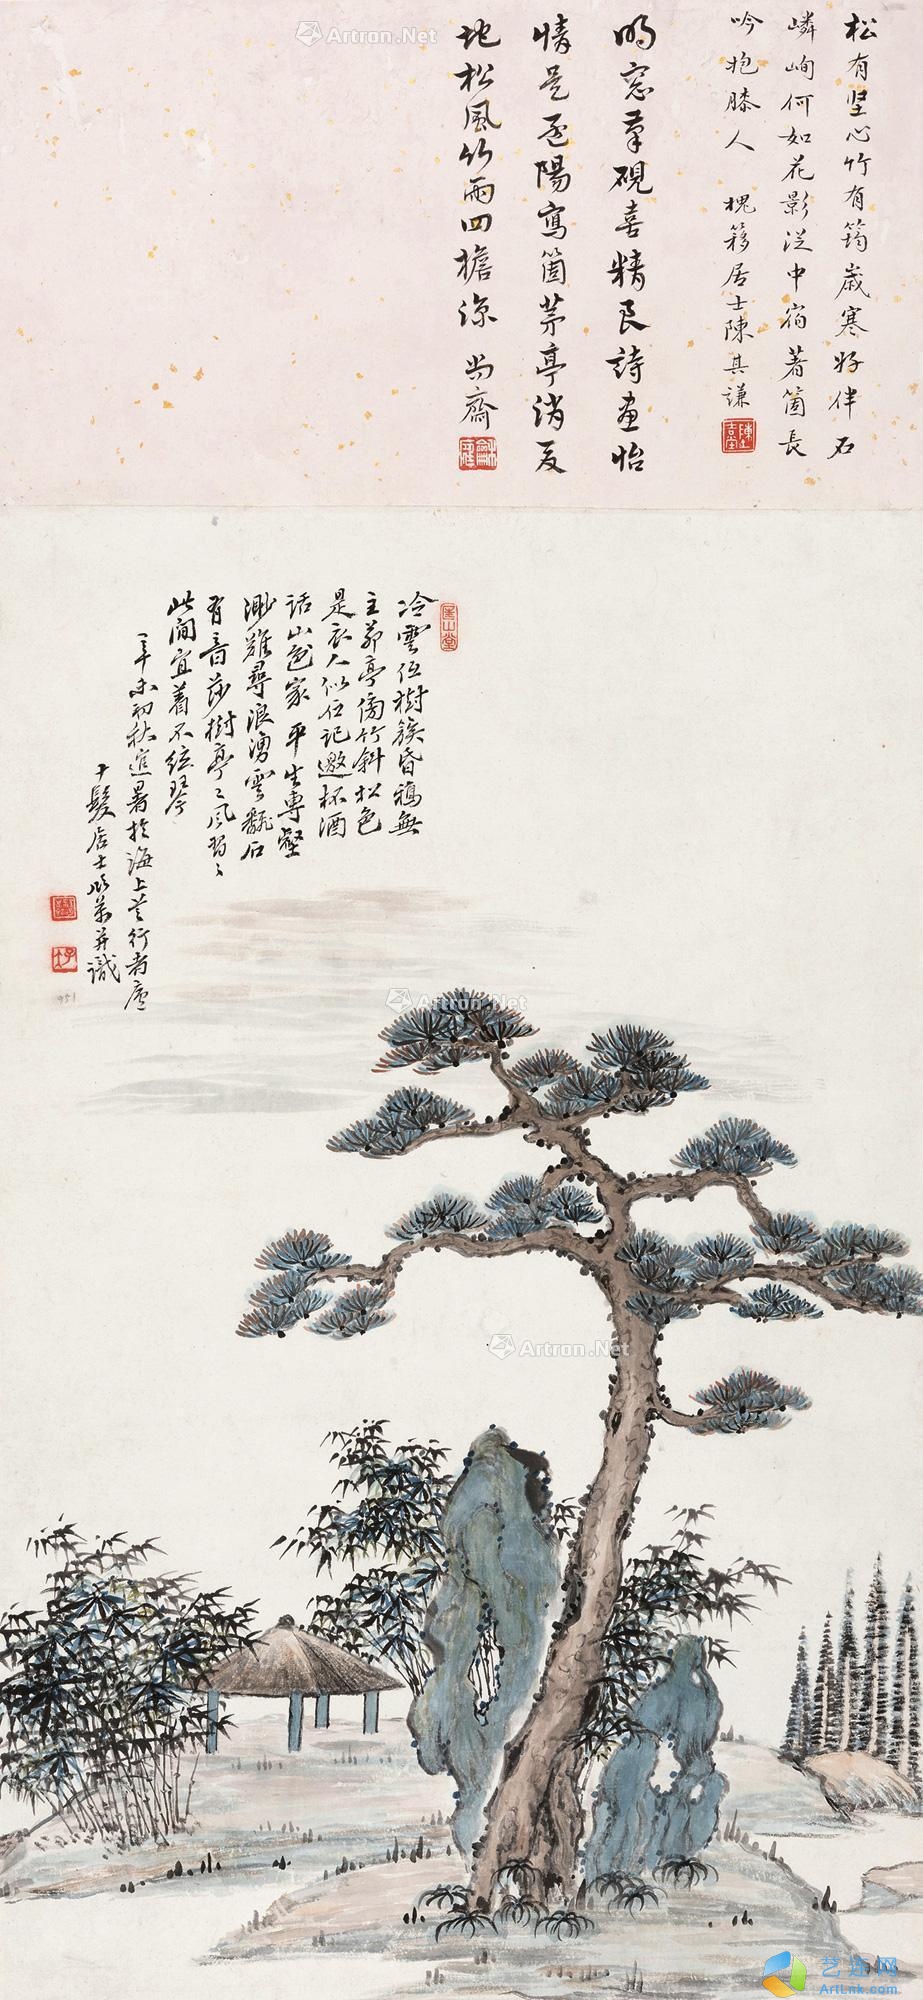 松有坚心竹有筠歲寒好伴石
嶙峋何如花影湿中宿著箇長
吟抱膝人 槐簃居士陳其謙
明窓筆硯喜精良詩畫怡
情是通陽寫箇茅亭消夏
地松風竹雨四檐涼 尚齋
冷雲低樹簇昏鴉無
主茆亭傍竹斜松色
是衣人似住記邀杯酒
話山色家 平生專壑
渺難尋浪湧雲翻石
有音莎樹亭亭風習習
此間宜着不絃琴
辛未初秋逭暑於海上苦行者廬
子髮居士 并識
951
Artron.Net
Artron.Net
Artron.Net
艺连网
ArtLnk.com